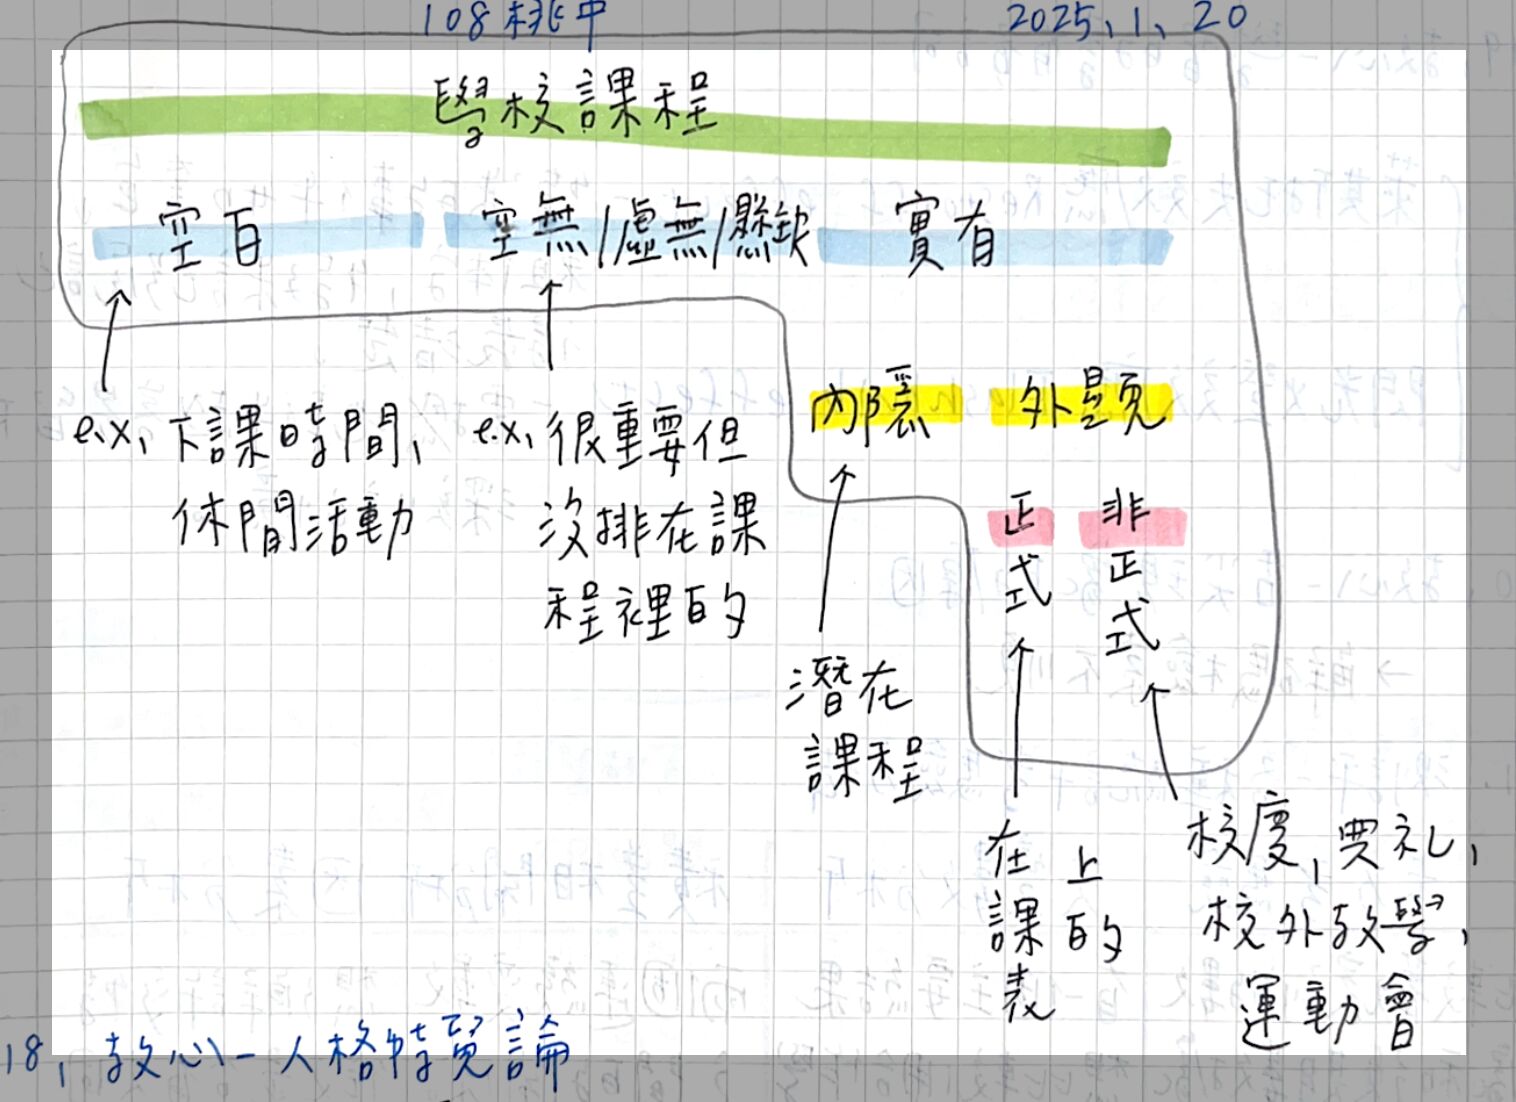 108桃中
2025,1,20
學校課程
空白 空無/虛無/懸缺 實有
內隱 外顯
e.x, 下課時間,
休閒活動
e.x, 很重要但
沒排在課
程裡的
正式
非正式
潛在
課程
在課表
上的
校慶,畢礼,
校外教學,
運動會
18, 教心-人格特質論